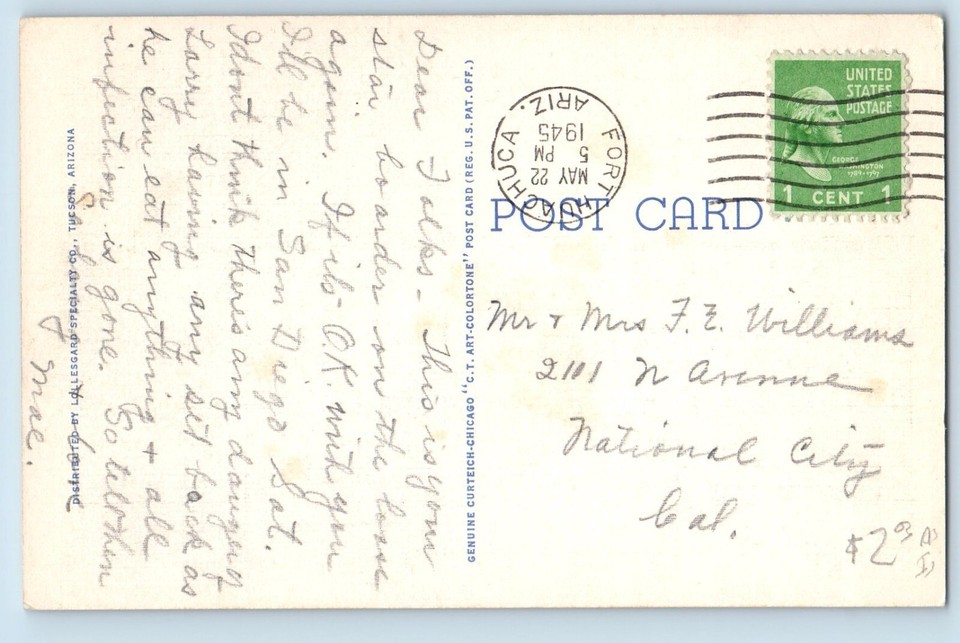 Dear Folks- This is your
star boarder on the loose
again. If its OK. with you
I'll be in San Diego Sat.
I dont think there is any danger of
Larry having any set back as
he can eat anything + all
infection is gone. So till then
Mae.
DISTRIBUTED BY LOLLESGARD SPECIALTY CO., TUCSON, ARIZONA
GENUINE CURTEICH-CHICAGO "C.T. ART-COLORTONE" POST CARD (REG. U.S. PAT. OFF.)
FORT HUACHUCA
ARIZ.
MAY 22
5 PM
1945
UNITED
STATES
POSTAGE
GEORGE
WASHINGTON
1789-1797
1 CENT 1
POST CARD
Mr + Mrs F. E. Williams
2101 N Avenue
National City
Cal.
$2